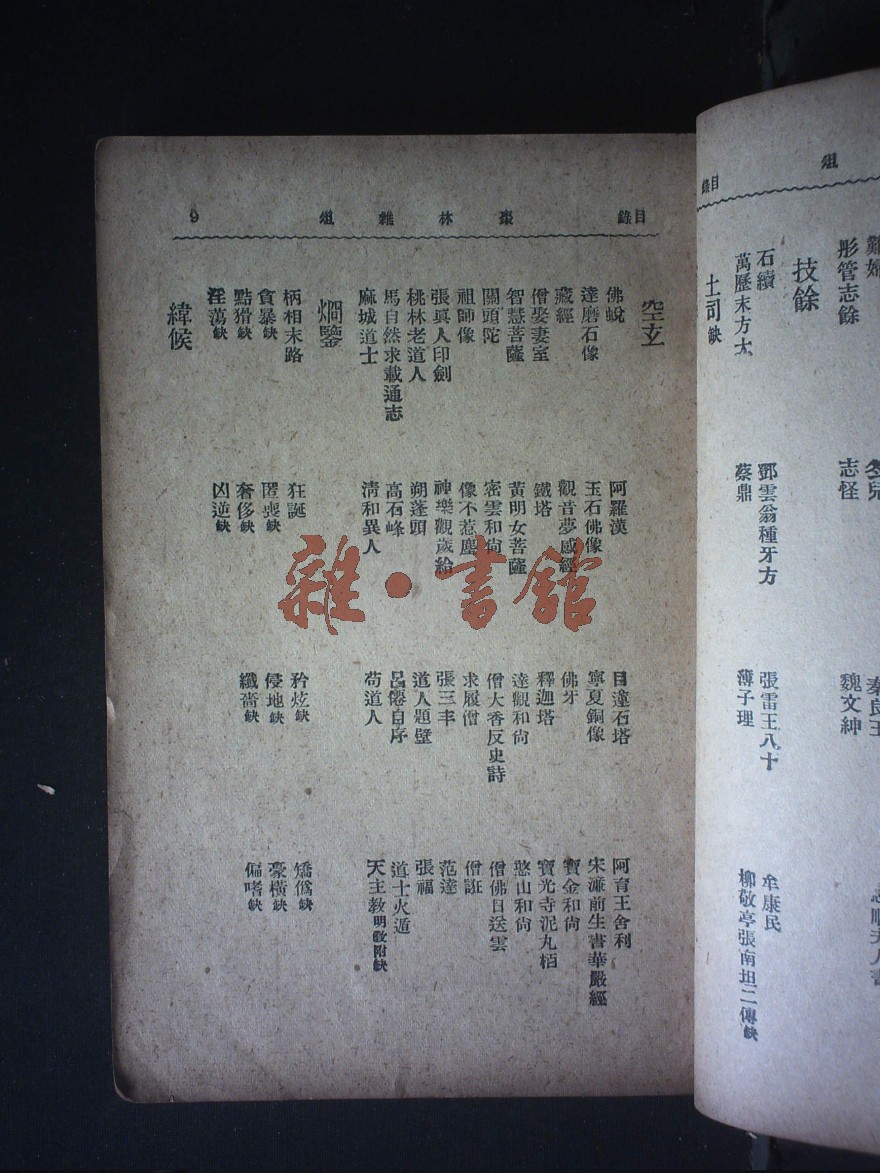 目錄 俎
彤管志餘 志怪 魏文紳
技餘
石續 鄧雲翁種牙方 張雷王八十 牟康民
萬歷末方太 蔡鼎 薄子理 柳敬亭張南坦二傳缺
土司缺
目錄 棗林雜俎 9
空玄
佛蛻 阿羅漢 石塔 阿育王舍利
達磨石像 玉石佛像 寧夏銅像 宋濂前生書華嚴經
藏經 觀音夢感經 佛牙 寶金和尙
僧娶妻室 鐵塔 釋迦塔 寶光寺泥丸栢
智慧菩薩 黃明女菩薩 達觀和尙 憨山和尙
關頭陀 密雲和尙 僧大香反史詩 僧佛日送雲
祖師像 像不惹塵 求履僧 僧誑
張眞人印劍 神樂觀歲給 張三丰 范達
桃林老道人 朔蓬頭 道人題壁 張福
馬自然求載通志 高石峰 呂僊自序 道士火遁
麻城道士 淸和異人 苟道人 天主教明敎附缺
烱鑒
柄相末路 狂誕 矜炫缺 矯僞缺
貪暴缺 匿喪缺 侵地缺 豪橫缺
黠猾缺 奢侈缺 纖嗇缺 偏嗜缺
淫蕩缺 凶逆缺
緯候
雜·書館